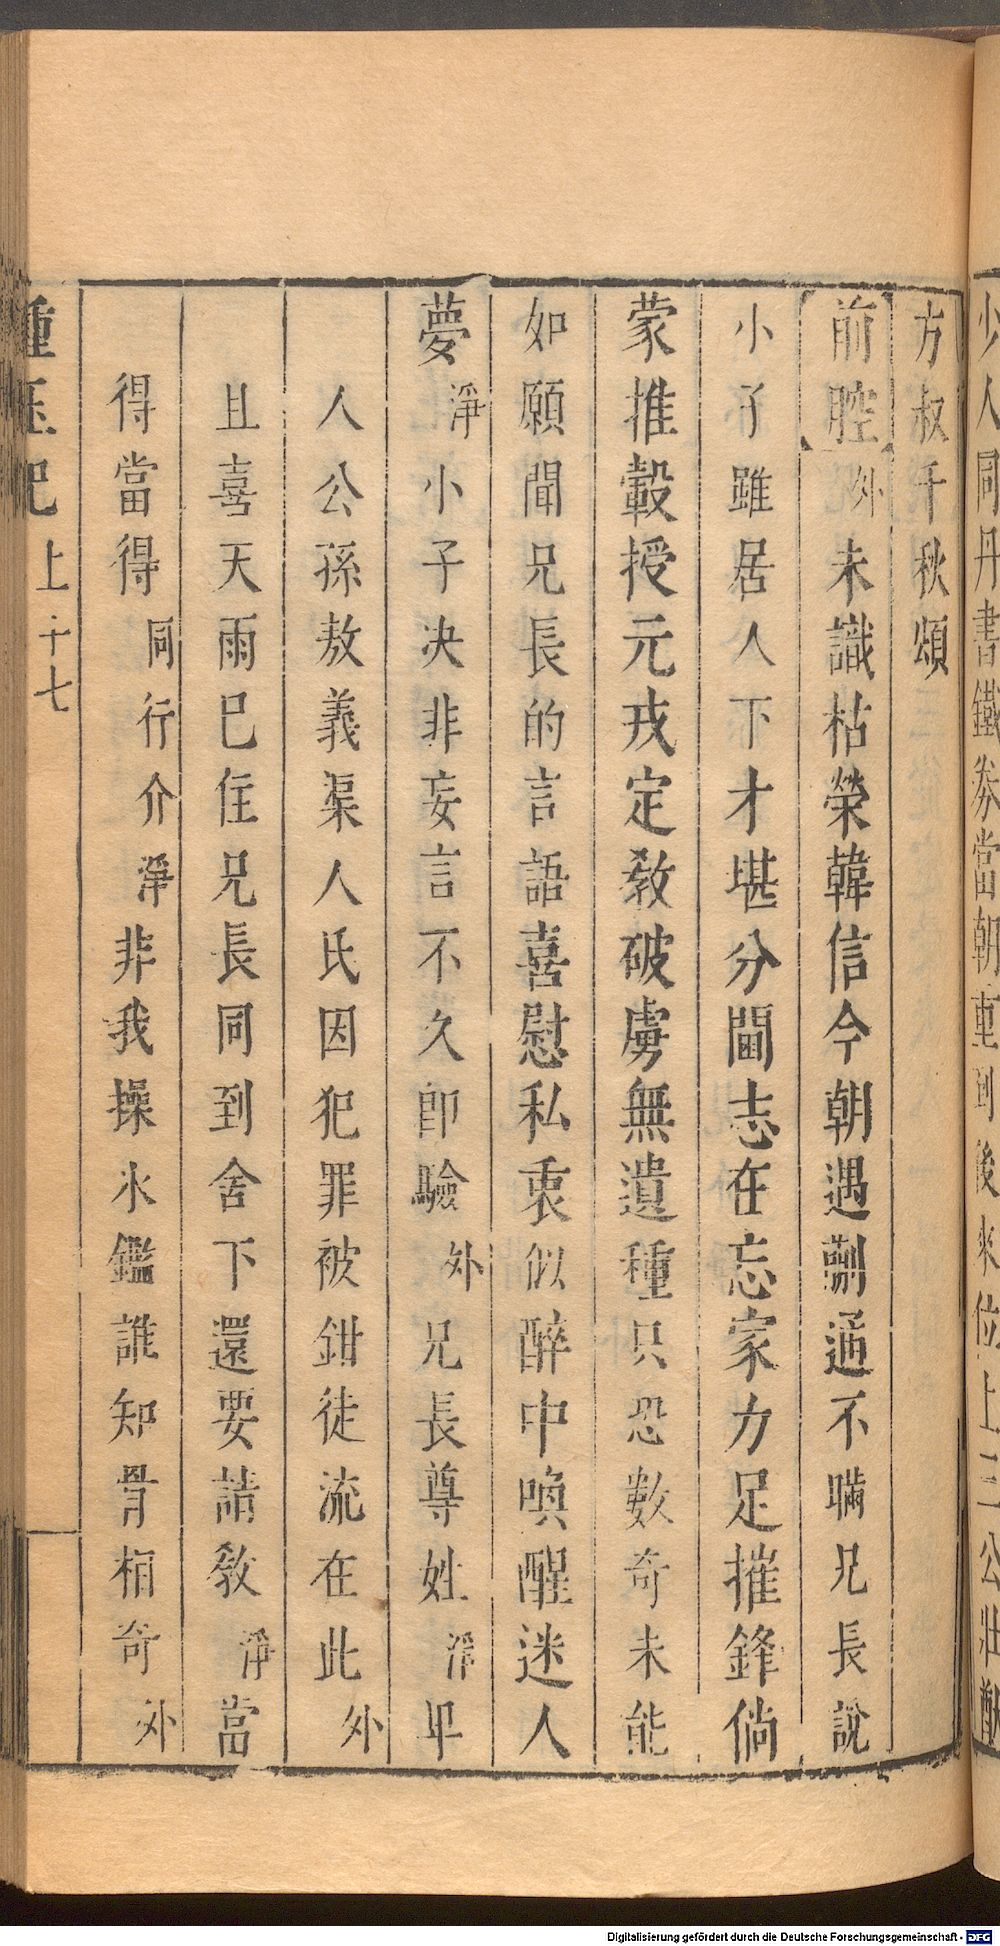 少人同丹書鐵券當朝重到後來位上三公壯猷
方叔千秋頌
前腔外未識枯榮韓信今朝遇蒯通不瞞兄長說
小子雖居人下才堪分閫志在忘家力足摧鋒倘
蒙推轂授元戎定教破虜無遺種只恐數奇未能
如願聞兄長的言語喜慰私衷似醉中喚醒迷人
夢淨小子决非妄言不久卽驗外兄長尊姓淨卑
人公孫敖義渠人氏因犯罪被鉗徒流在此外
且喜天雨已住兄長同到舍下還要請教淨當
得當得同行介淨非我操氷鑑誰知骨相奇外
種玉記 上 十七
Digitalisierung gefördert durch die Deutsche Forschungsgemeinschaft - DFG